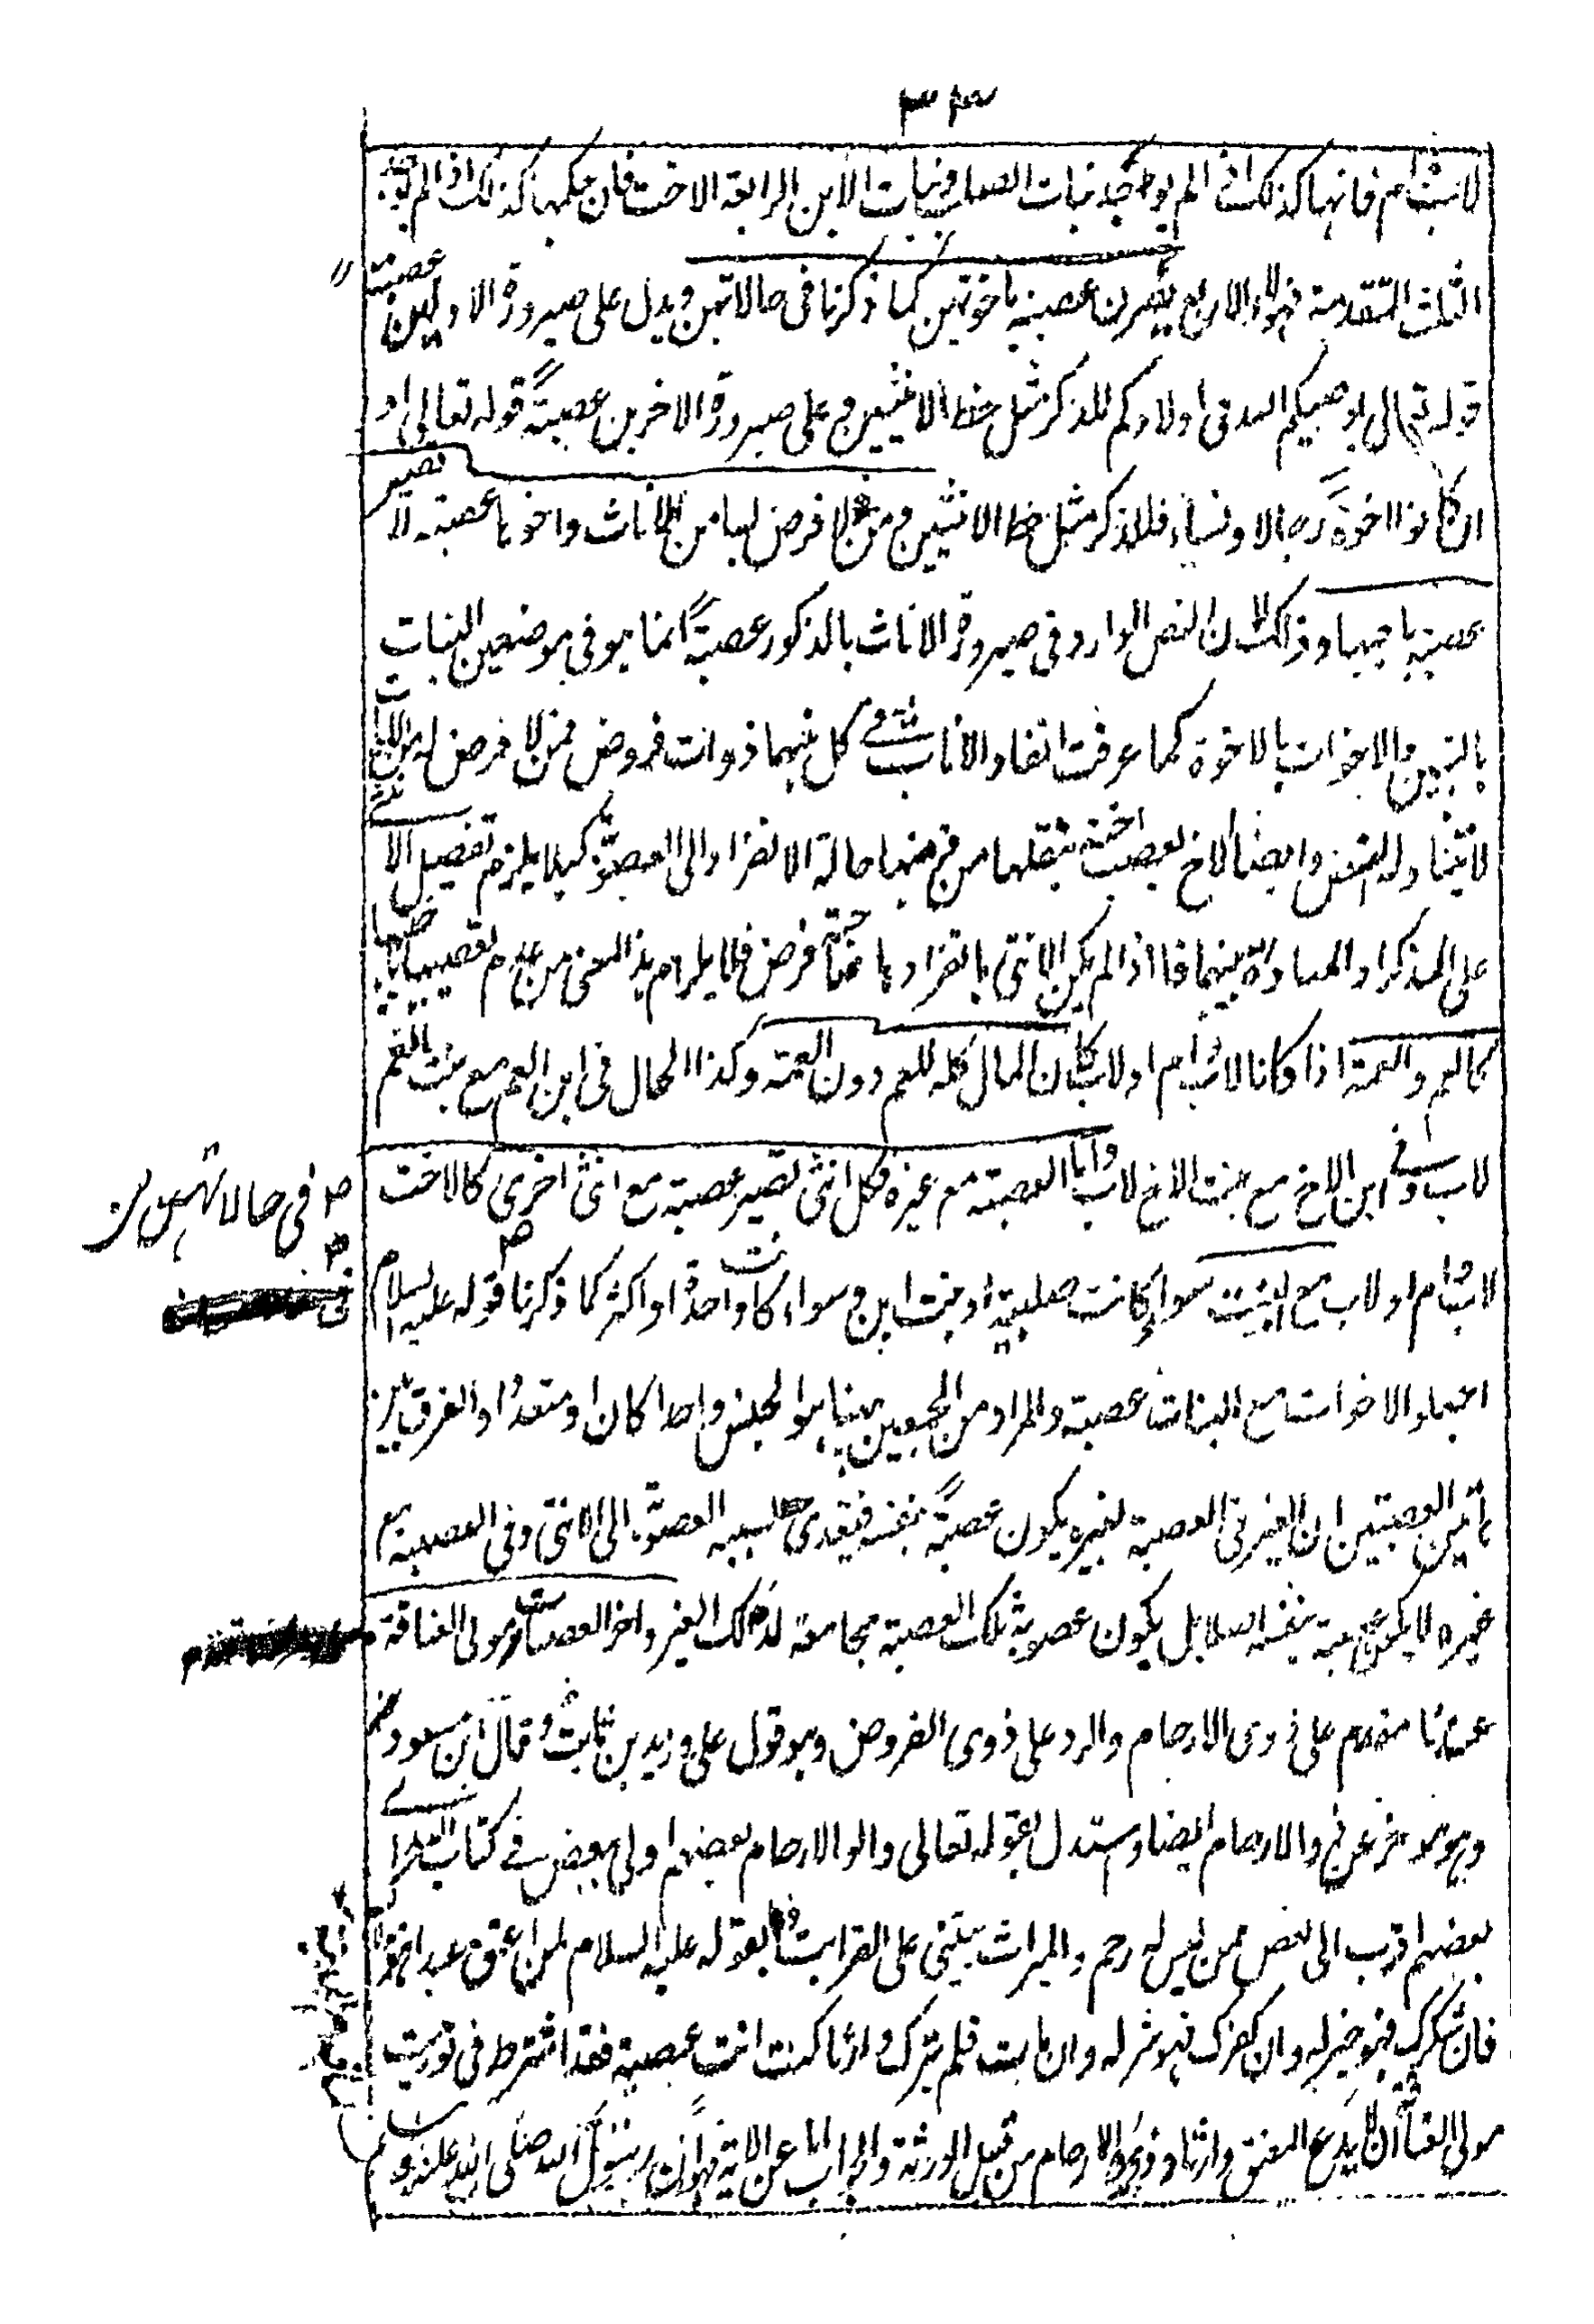 ٣٣
لاب وام فانها كذلك اذا لم يوجد بنات الصلب وبنات الابن الرابعة الاخت لاب فان حكمها كذلك اذا لم توجد
الثلث المتقدمة فهؤلاء الاربع يصرن عصبة باخوتهن كما ذكرنا فى حالاتهن ويدل على صيرورة الاوليين عصبة
قوله تعالى يوصيكم الله فى اولادكم للذكر مثل حظ الانثيين وعلى صيرورة الاخريين عصبةً قوله تعالى و
ان كانوا اخوةً رجالا ونساء فللذكر مثل حظ الانثيين ومن لا فرض لها من الاناث واخوها عصبة لا تصير
عصبة باخيها وذلك لان النص الوارد فى صيرورة الاناث بالذكور عصبةً انما هو فى موضعين البنات
بالبنين والاخوات بالاخوة كما عرفت انفا والاناث فى كل منهما ذوات فروض فمن لا فرض له من الاناث
لا يتناوله النص وايضا الاخ يعصب اخته بنقلها من فرضها حالة الانفراد الى العصوبة كيلا يلزم تفضيل الانثى
على الذكر او المساواة بينهما فاذا لم يكن الانثى بانفرادها صاحبة فرض فلا يلزم هذا المعنى من عدم تعصيبها باخيها
كالعم والعمة اذا كانا لاب وام او لاب كان المال كله للعم دون العمة وكذا الحال فى ابن العم مع بنت العم
لاب وفى ابن الاخ مع بنت الاخ لاب واما العصبة مع غيره فكل انثى تصير عصبة مع انثى اخرى كالاخت
لاب وام او لاب مع البنت سواء كانت صلبية او بنت ابن وسواء كانت واحدة او اكثر كما ذكرنا قوله عليه السلام
فى حالاتهن من
اجعلوا الاخوات مع البنات عصبة والمراد من الجمعين ههنا هو الجنس واحدا كان او متعددا والفرق بين
هاتين العصبتين ان الغير فى العصبة لغيره يكون عصبةً بنفسه فيتعدى بسببه العصوبة الى الانثى وفى العصبة مع
غيره لا يكون عصبة بنفسه اصلا بل يكون عصوبة تلك العصبة مجامعة لذلك الغير واخر العصبات مولى العتاقة
عندنا مقدم على ذوى الارحام والرد على ذوى الفروض وهو قول على وزيد بن ثابت وقال ابن مسعود
وهو موخر عن ذوى الارحام ايضا ويستدل بقوله تعالى واولوا الارحام بعضهم اولى ببعض فى كتاب الله اى
بعضهم اقرب الى بعض ممن ليس له رحم والميراث يبتنى على القرابة ولنا قوله عليه السلام لمن اعتق عبدا هو
فان شكرك فهو خير له وان كفرك فهو شر له وان مات فلم يترك وارثا كنت انت عصبة فقد اشترط فى توريث
مولى العتاقة ان لا يدع المعتق وارثا وذوى الارحام من قبيل الورثة والجواب عن الاية فهو ان رسول الله صلى الله عليه وسلم